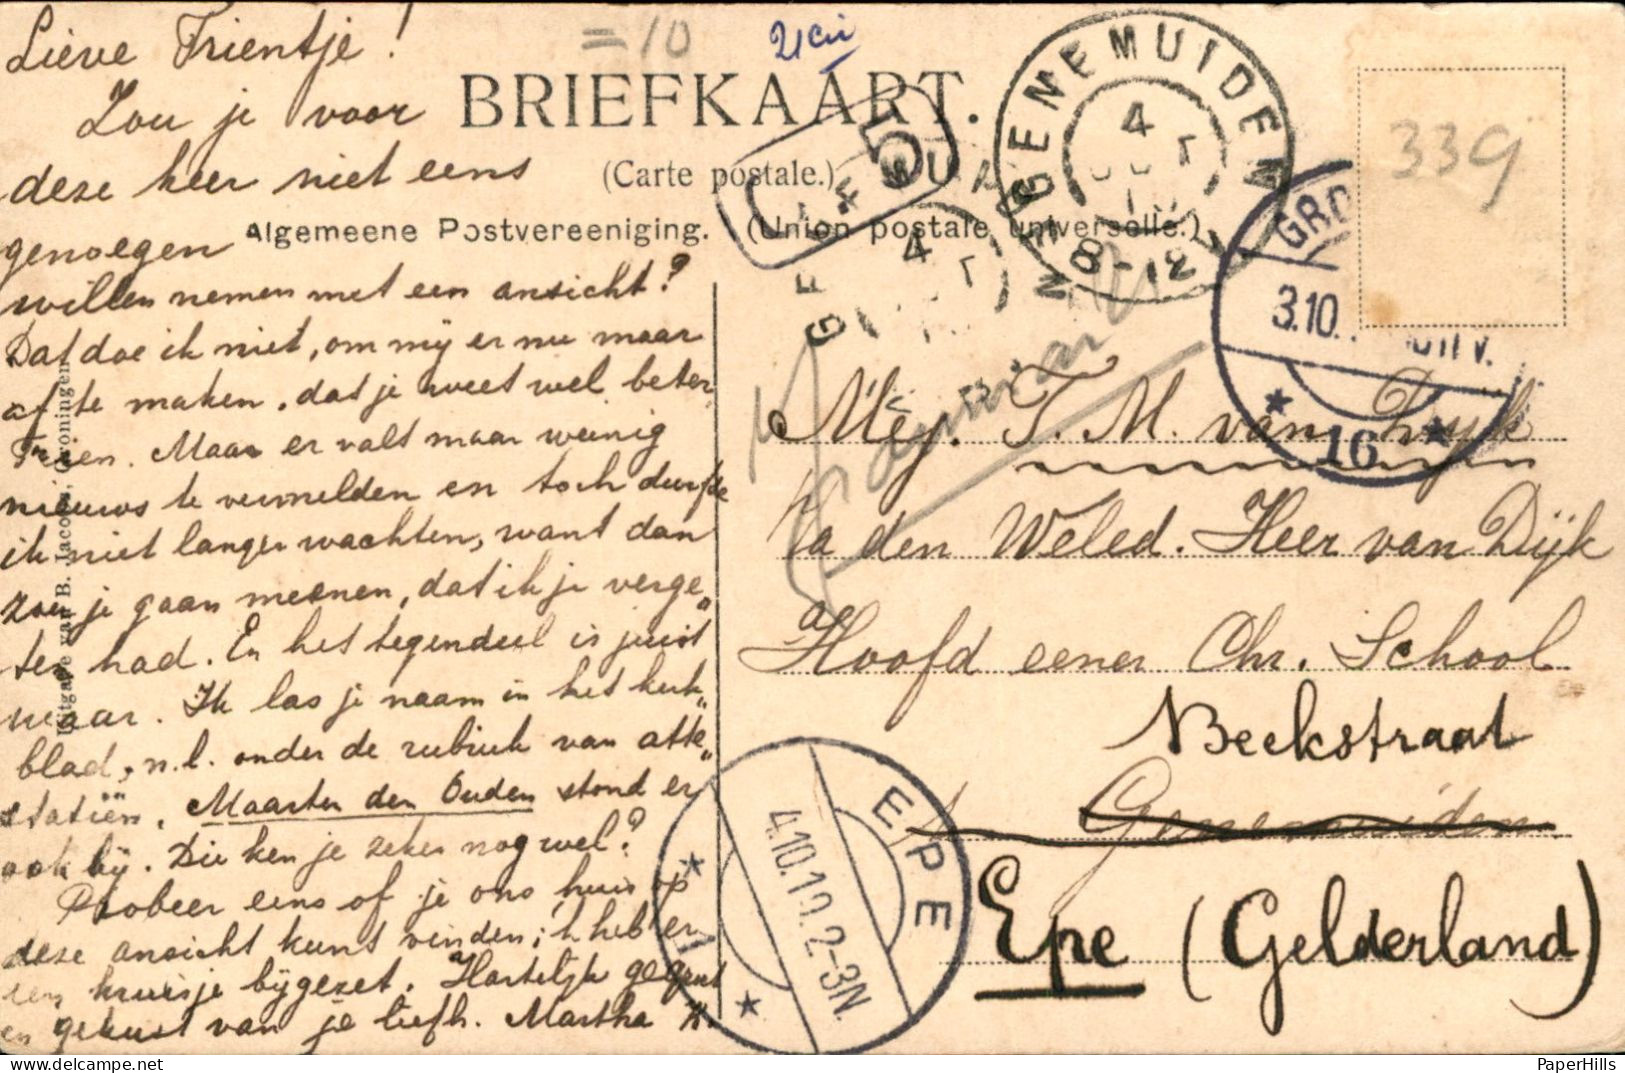 Lieve Trientje!
Zou je voor
deze keer niet eens
genoegen
willen nemen met een ansicht?
Dat doe ik niet, om my er nu maar
af te maken, dat je weet wel beter
Trien. Maar er valt maar weinig
nieuws te vermelden en toch durfde
ik niet langer wachten, want dan
zou je gaan meenen, dat ik je verge„
ten had. En het tegendeel is juist
waar. Ik las je naam in het kerk„
blad, n.l. onder de rubriek van atte„
statiën. Maarten den Ouden stond er
ook by. Die ken je zeker nog wel?
Probeer eens of je ons huis op
deze ansicht kunt vinden; ik heb er
een kruisje bygezet. Hartelyk gegroet
en gekust van je liefh. Martha K.
Uitgave van B. Jacobs, Groningen
=10
BRIEFKAART.
(Carte postale.)
Algemeene Postvereeniging. (Union postale universelle.)
GENEMUIDEN
4
8-12V
5
4
339
GRO
3.10.
V.
16
Mej. T. M. van Dyk
a/a den Weled. Heer van Dijk
Hoofd eener Chr. School
Beekstraat
Genemuiden
Epe (Gelderland)
EPE
4.10.10.2-3N.
PaperHills